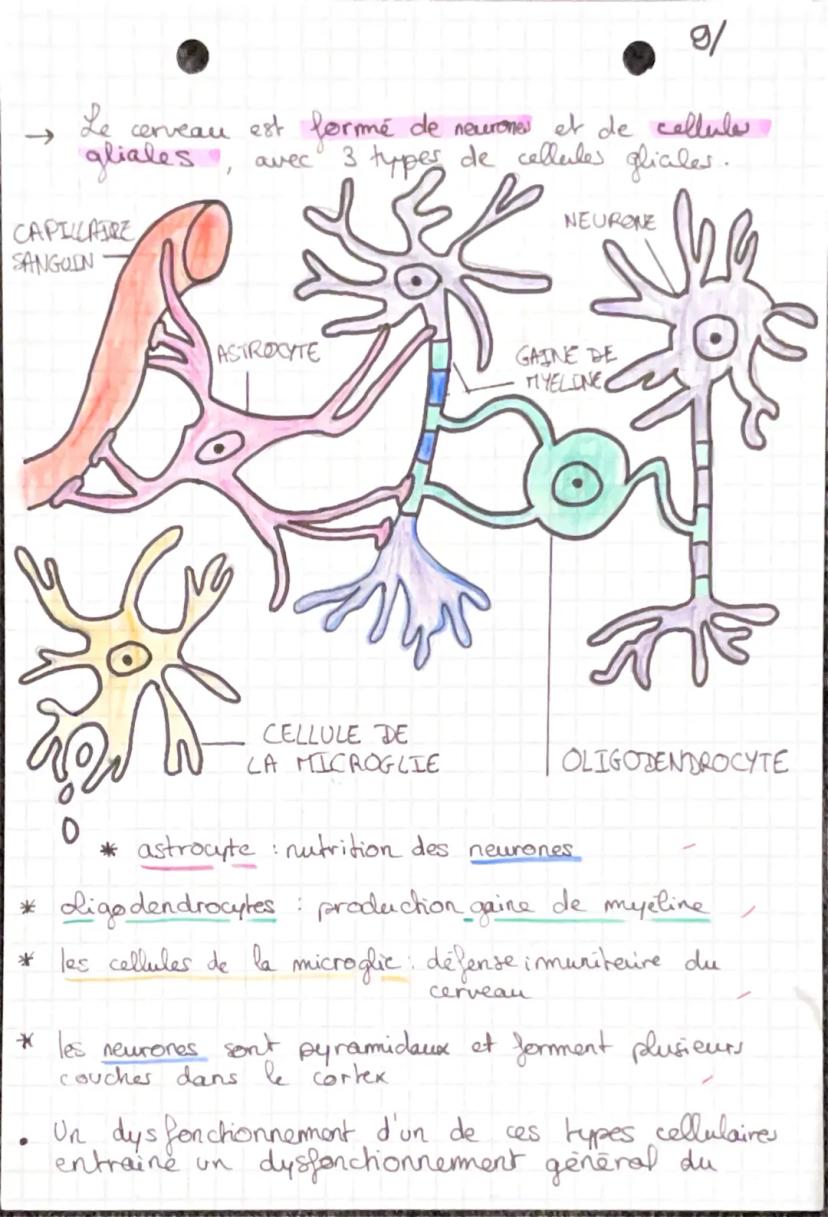 9/
→ Le cerveau est formé de neurones et de cellules
gliales, avec 3 types de cellules gliales.
CAPILLAIRE
SANGUIN
NEURONE
ASTROCYTE
GAINE DE
MYELINE
CELLULE DE
LA MICROGLIE
OLIGODENDROCYTE
* astrocyte : nutrition des neurones
* oligodendrocytes : production gaine de myéline
* les cellules de la microglie : défense imunitaire du
cerveau
* les neurones sont pyramidaux et forment plusieurs
couches dans le cortex
• Un dysfonctionnement d'un de ces types cellulaires
entraine un dysfonctionnement général du